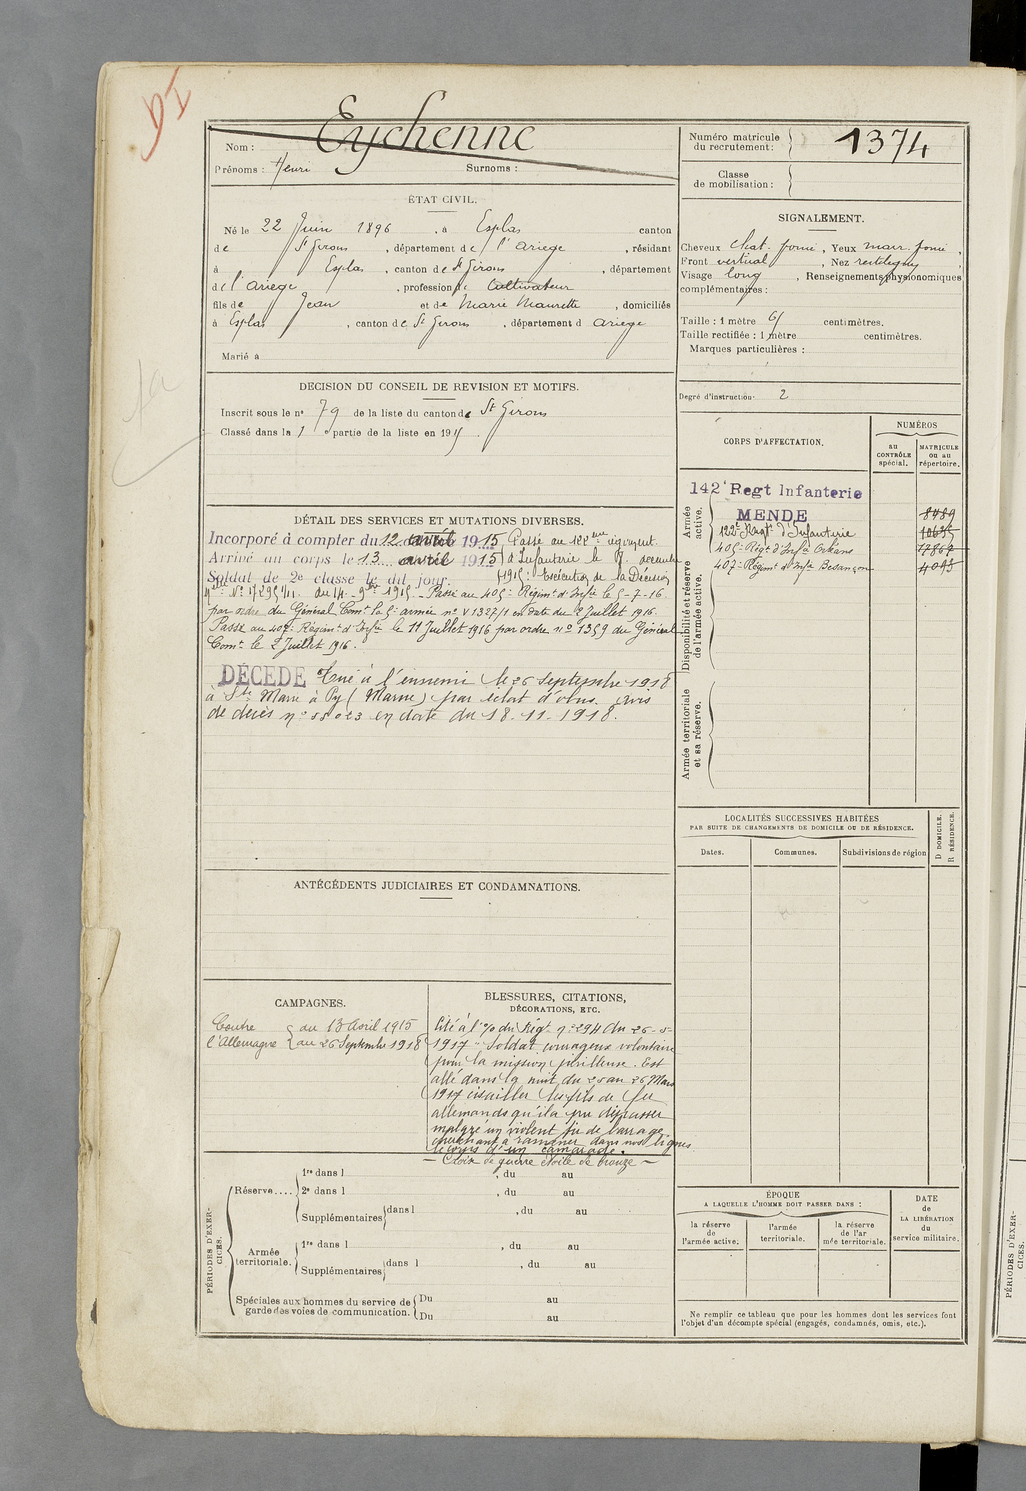 DI
Nom : Eychenne
Prénoms : Henri Surnoms :
Numéro matricule du recrutement : 1374
Classe de mobilisation :
ÉTAT CIVIL.
Né le 22 Juin 1896, à Esplas canton
de St Girons, département de l'Ariège, résidant
à Esplas, canton de St Girons, département
de l'Ariege, profession de Cultivateur
fils de Jean et de Marie Maurette, domiciliés
à Esplas, canton de St Girons, département d Ariege
Marié à
SIGNALEMENT.
Cheveux chat. foncé, Yeux marr. foncé,
Front vertical, Nez rectiligne,
Visage long, Renseignements physionomiques
complémentaires :
Taille : 1 mètre 61 centimètres.
Taille rectifiée : 1 mètre centimètres.
Marques particulières :
Degré d'instruction : 2
DECISION DU CONSEIL DE REVISION ET MOTIFS.
Inscrit sous le nº 79 de la liste du canton de St Girons
Classé dans la 1 e partie de la liste en 1915.
DÉTAIL DES SERVICES ET MUTATIONS DIVERSES.
Incorporé à compter du 12 avril 1915 Passé au 122eme régiment
Arrivé au corps le 13 avril 1915 d'Infanterie le décembre
Soldat de 2e classe le dit jour. 1915: Exécution de la Décision
du 14- 9bre 1915 - Passé au 405e Régimt d'Infie le 5-7-16
par ordre du Général Comt la 5e armée nº V1327/1 en date du 2 Juillet 1916.
Passé au 407e Régimt d'Infie le 11 Juillet 1916 par ordre nº 1359 du Général
Comt le 2 Juillet 1916.
DÉCÉDÉ Tué à l'ennemi le 26 Septembre 1918
à Ste Marie à Py (Marne) par éclat d'obus. Avis
de décès nº en date du 18-11-1918.
CORPS D'AFFECTATION.
NUMÉROS
au CONTRÔLE spécial.
MATRICULE ou au répertoire.
Armée active.
142e Regt Infanterie
MENDE 8489
122e Régt d'Infanterie
405e Régt d'Infie Orléans
407e Régimt d'Infie Besançon 4045
Disponibilité et réserve de l'armée active.
Armée territoriale et sa réserve.
LOCALITÉS SUCCESSIVES HABITÉES
PAR SUITE DE CHANGEMENTS DE DOMICILE OU DE RÉSIDENCE.
Dates. Communes. Subdivisions de région D DOMICILE. R RÉSIDENCE.
ANTÉCÉDENTS JUDICIAIRES ET CONDAMNATIONS.
CAMPAGNES.
Contre du 13 Avril 1915
l'Allemagne au 26 Septembre 1918
BLESSURES, CITATIONS,
DÉCORATIONS, ETC.
Cité à l'o/ du Régt nº 294 du 26-5-
1917 "Soldat courageux volontaire
pour la mission périlleuse. Est
allé dans la nuit du 25 au 26 Mars
1917 cisailler les fils de fer
allemands qu'il a pu dépasser
malgré un violent feu de barrage
cherchant à ramener dans nos lignes
le corps d'un camarade.
— Croix de guerre étoile de bronze —
PÉRIODES D'EXERCICES.
Réserve.... 1re dans l , du au
2e dans l , du au
Supplémentaires dans l , du au
Armée territoriale. 1re dans l , du au
Supplémentaires dans l , du au
Spéciales aux hommes du service de Du au
garde des voies de communication. Du au
ÉPOQUE
A LAQUELLE L'HOMME DOIT PASSER DANS :
la réserve de l'armée active.
l'armée territoriale.
la réserve de l'ar mée territoriale.
DATE de LA LIBÉRATION du service militaire.
Ne remplir ce tableau que pour les hommes dont les services font
l'objet d'un décompte spécial (engagés, condamnés, omis, etc.).
PÉRIODES D'EXER-
CICES.